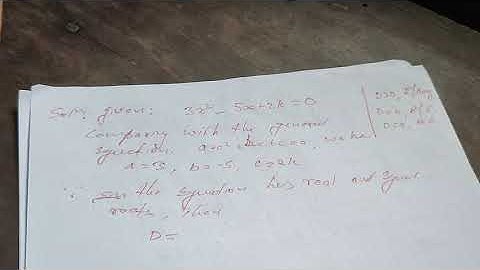 Soln, given: 3x² - 5x+2k=0
Comparing with the general
equation ax²+bx+c=0, we have
a=3, b=-5, c=2k
∵ the equation has real and equal
roots, then
D=
D>0, R/
D=0, R/E
D<0,